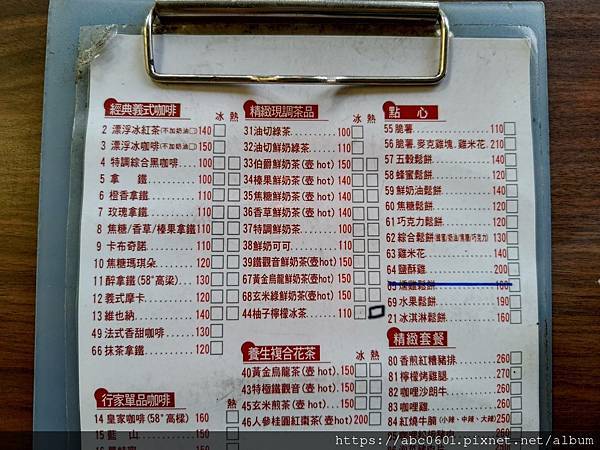 經典義式咖啡
冰 熱
2 漂浮冰紅茶(不加奶油□) 140
3 漂浮冰咖啡(不加奶油□) 140
4 特調綜合黑咖啡 100
5 拿 鐵 110
6 橙香拿鐵 110
7 玫瑰拿鐵 110
8 焦糖/香草/榛果拿鐵 110
9 卡布奇諾 110
10 焦糖瑪琪朵 120
11 醉拿鐵(58°高梁) 130
12 義式摩卡 120
13 維也納 140
49 法式香甜咖啡 130
66 抹茶拿鐵 120
行家單品咖啡
熱
14 皇家咖啡(58°高樑) 160
15 藍 山 150
精緻現調茶品
冰 熱
31 油切綠茶 100
32 油切鮮奶綠茶 110
33 伯爵鮮奶茶(壺 hot) 150
34 榛果鮮奶茶(壺 hot) 140
35 焦糖鮮奶茶(壺 hot) 140
36 香草鮮奶茶(壺 hot) 140
37 特調鮮奶茶 100
38 鮮奶可可 110
39 鐵觀音鮮奶茶(壺hot) 150
67 黃金烏龍鮮奶茶(壺hot) 150
68 玄米綠鮮奶茶(壺hot) 150
44 柚子檸檬冰茶 110
養生複合花茶
冰 熱
40 黃金烏龍茶(壺 hot) 150
43 特極鐵觀音(壺 hot) 150
45 玄米煎茶(壺 hot) 150
46 人參桂圓紅棗茶(壺 hot) 200
點 心
55 脆薯 110
56 脆薯.麥克雞塊.雞米花 210
57 五穀鬆餅 110
58 蜂蜜鬆餅 110
59 鮮奶油鬆餅 110
60 焦糖鬆餅 110
61 巧克力鬆餅 110
62 綜合鬆餅(蜂蜜/奶油/焦糖/巧克力) 130
63 雞米花 140
64 鹽酥雞 200
燻雞鬆餅 180
69 水果鬆餅 190
21 冰淇淋鬆餅 160
精緻套餐
80 香煎紅糟豬排 260
81 檸檬烤雞腿 260
82 咖哩沙朗牛 260
83 咖哩雞 260
84 紅燒牛腩(小辣、中辣、大辣) 250
https://abc0601.pixnet.net/album